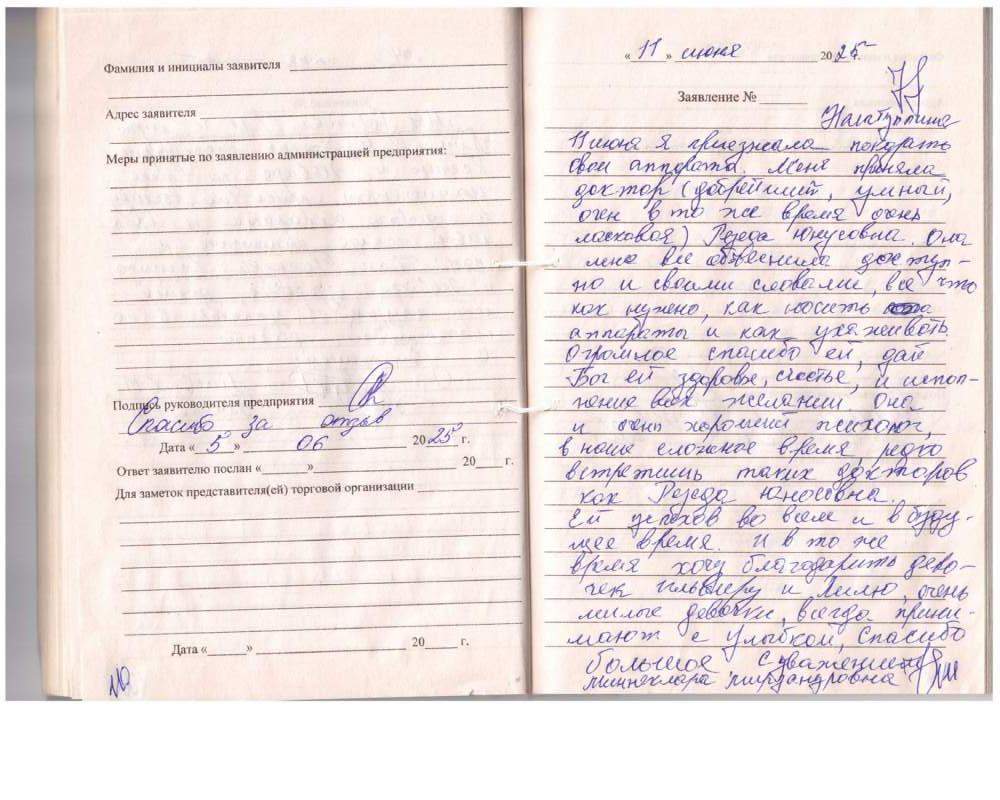 Фамилия и инициалы заявителя
Адрес заявителя
Меры принятые по заявлению администрацией предприятия:
Подпись руководителя предприятия
Спасибо за отзыв
Дата « 5 » 06 2025 г.
Ответ заявителю послан «      » 20    г.
Для заметок представителя(ей) торговой организации
Дата «      » 20    г.
« 11 » июня 2025 г.
Заявление №
11 июня я приезжала покупать
свои аппарата. Меня приняла
доктор (добрейший, умный,
очен в то же время очень
ласковая) Резеда Юнусовна. Она
мне все объяснила доступ-
но и своими словами, все что
как нужно, как носить
аппараты и как ухаживать.
Огромное спасибо ей, дай
Бог ей здоровье, счастье, и испол-
нение всех желании. Она
и очень хороший психолог,
в наше сложное время, редко
встретишь таких докторов
как Резеда Юносовна.
Ей успехов во всем и в буду-
щее время. И в то же
время хочу благодарить дево-
чек Гульнеру и Лилю, очень
милые девочки, всегда прини-
мают с улыбкой, Спасибо
большое С уважением